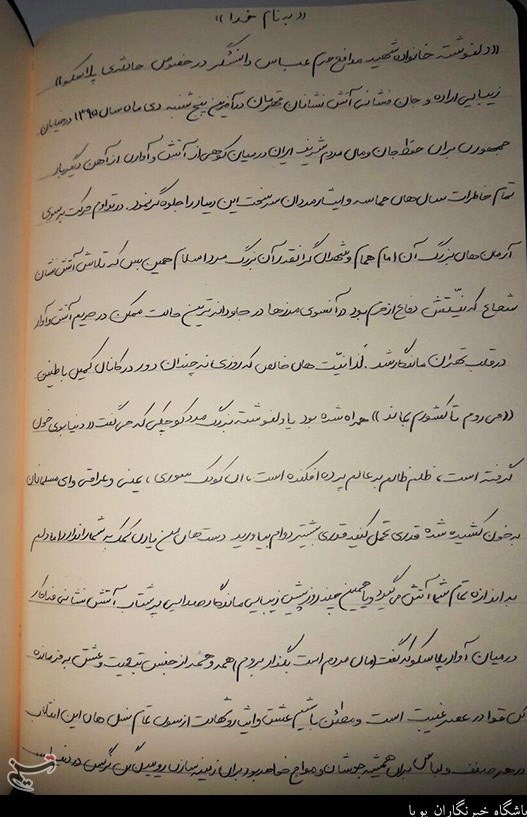 «به نام خدا»
«دلنوشته خانواده شهید مدافع حرم عباس دانشگر در خصوص حادثه ی پلاسکو»
زیبایی اراده و جان فشانی آتش نشانان تهرانی در آخرین پنج شنبه دی ماه سال ۱۳۹۵ در خیابان
جمهوری برای حفظ جان و مال مردم شریف ایران در میان کوهی از آتش و آواری از آهن دیگر بار
تمام خاطرات سال های حماسه و ایثار مردان سرسخت این دیار را جلوه گر نمود. در تداوم حرکت به سوی
آرمان های بزرگ آن امام همام و شهدای گرانقدر آن بزرگ مرد اسلام همین بس که تلاش آتش نشان
شجاع که نیّتش دفاع از حرم بود در آنسوی مرزها در جاودانه ترین حالت ممکن در حریم آتش و آوار
در قلب تهران ماندگار شد. لذا نیّت های خالص که روزی نه چندان دور در کانال کمیل با طنین
«می روم تا کشورم بماند» همراه شده بود با دلنوشته بزرگ مرد کوچکی که می گفت «دنیا بوی خون
گرفته است، ظلم ظالم بر عالم پرده افکنده است، ای کودک سوری، یمنی و عراقی وای مسلمانان
به خون کشیده شده قدری تحمل کنید قدری بیشتر دوام بیاورید دست های من یارای کمک به شما را ندارد اما دلم
به اندازه تمام شما آتش می گیرد» و یا همین چند روز پیش زیبایی ماندگار صدایی پرشتاب آتش نشانی فداکار
در میان آوار پلاسکو که گفت اموال مردم است بگذار بروم همه و همه از جنس تبعیت و عشق به فرمانده
کل قوا در عصر غیبت است و مطمئن باشیم عشق و ایثار و شهادت از سوی تمام نسل های این انقلاب
در هر صنف و لباس برای همیشه جوشان و مواج خواهد بود برای زمینه سازی
تسنیم
باشگاه خبرنگاران پویا